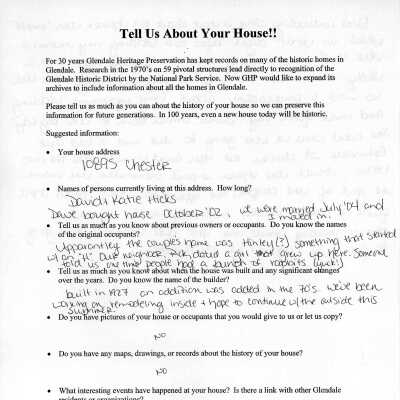 Tell Us About Your House!!
For 30 years Glendale Heritage Preservation has kept records on many of the historic homes in
Glendale. Research in the 1970's on 59 pivotal structures lead directly to recognition of the
Glendale Historic District by the National Park Service. Now GHP would like to expand its
archives to include information about all the homes in Glendale.
Please tell us as much as you can about the history of your house so we can preserve this
information for future generations. In 100 years, even a new house today will be historic.
Suggested information:
• Your house address
10895 Chester
• Names of persons currently living at this address. How long?
David & Katie Hicks
Dave bought house October '02, we were married July '04 and
I moved in.
• Tell us as much as you know about previous owners or occupants. Do you know the names
of the original occupants?
Apparently the couples name was Hinley(?) something that started
w/ an "H". Our neighbor, Rick, dated a girl that grew up here. Someone
told us one time people had a bunch of rabbits (yuck!)
• Tell us as much as you know about when the house was built and any significant changes
over the years. Do you know the name of the builder?
built in 1927 an addition was added in the 70's we've been
working on remodeling inside & hope to continue w/ the outside this
summer.
• Do you have pictures of your house or occupants that you would give to us or let us copy?
NO
• Do you have any maps, drawings, or records about the history of your house?
NO
• What interesting events have happened at your house? Is there a link with other Glendale
residents or organizations?